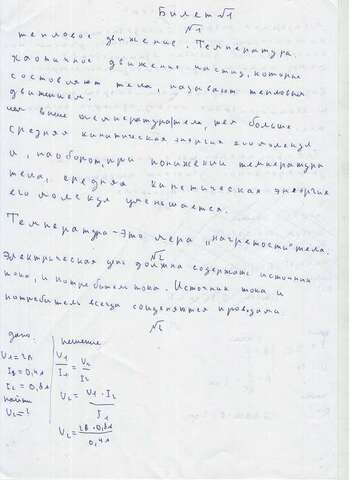 Билет №1
№1
тепловое движение. Температура.
хаотичное движение частиц, которые
составляют тела, называют тепловым
движением.
чем выше температура тела, тем больше
средняя кинитическая энергия его молекул
и, наоборот, при понижении температура
тела, средняя кинетическая энергия
его молекул уменьшается.
Температура-это мера "нагретости" тела.
№2
Электрическая цепь должна содержать источник
тока, и потребитель тока. Источник тока и
потребитель всегда соединяются проводами.
№2
дано: решение
U1=2В U1/I1 = U2/I2
I1=0,4А
I2=0,8А U2 = U1·I2/I1
найти
U2=? U2= 2В·0,8А/0,4А